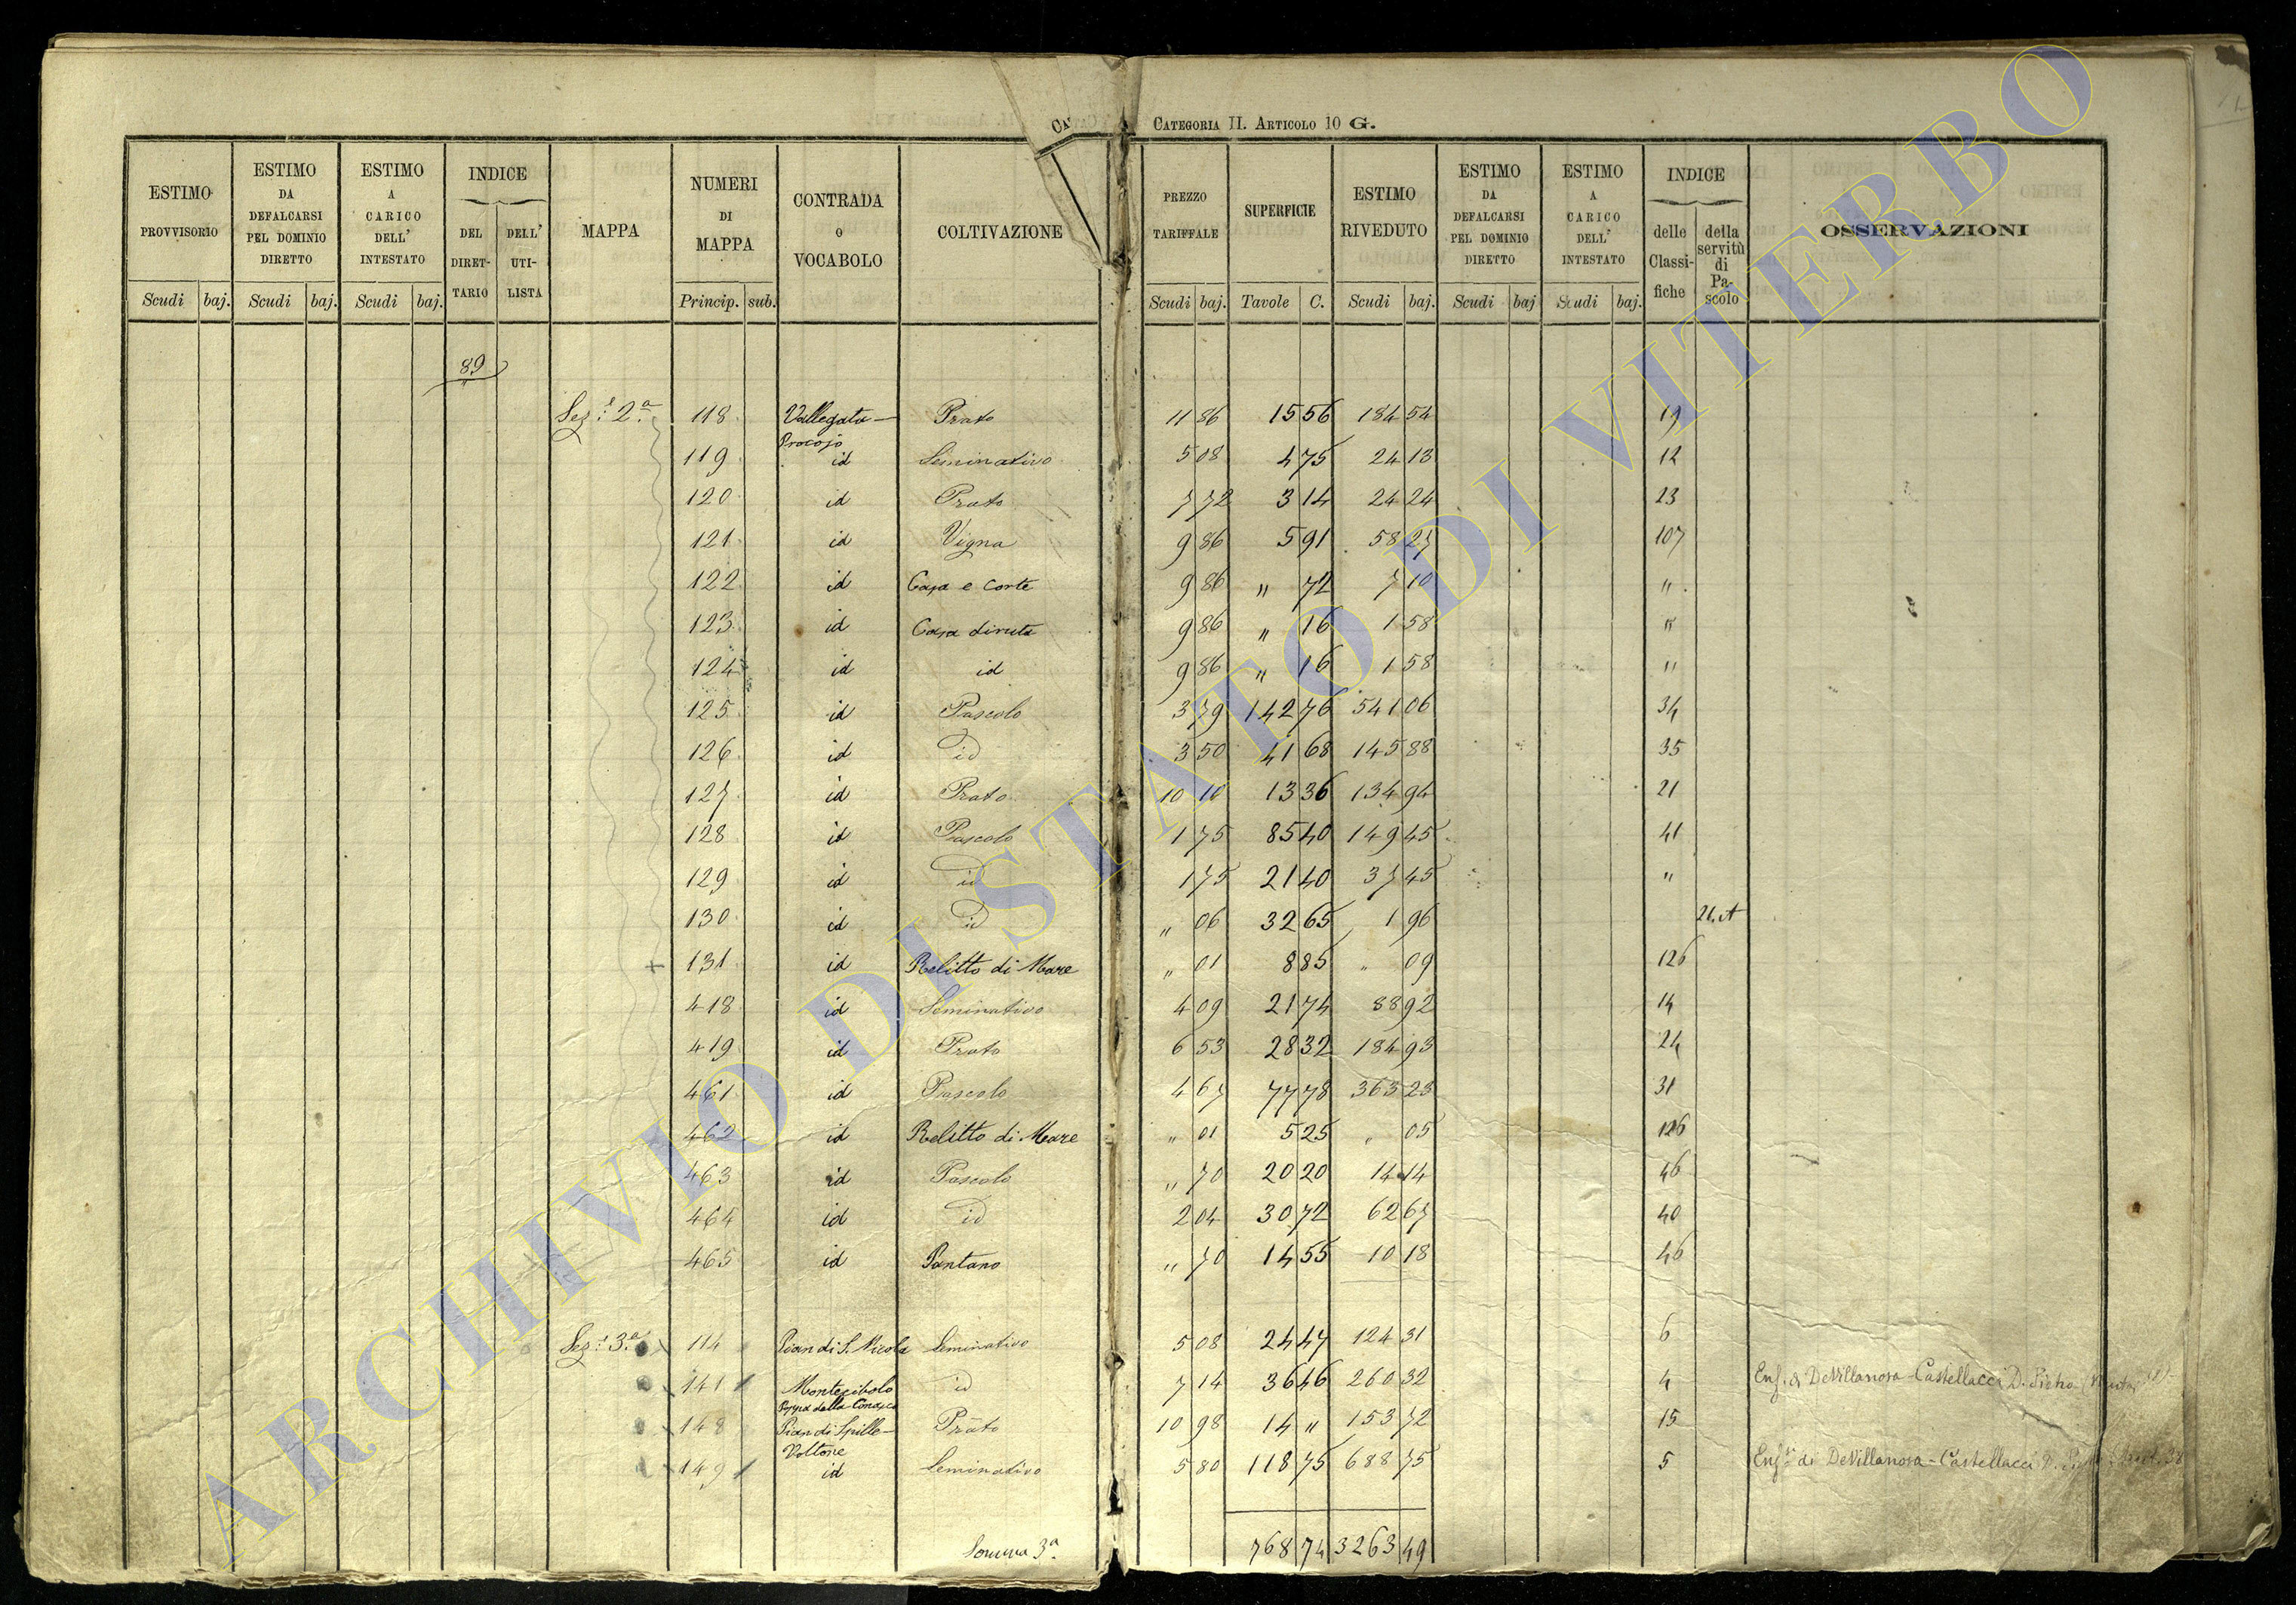 CATEGORIA II. ARTICOLO 10 G.
ESTIMO PROVVISORIO Scudi baj. ESTIMO DA DEFALCARSI PEL DOMINIO DIRETTO Scudi baj. ESTIMO A CARICO DELL' INTESTATO Scudi baj. INDICE DEL DIRET-TARIO DELL' UTI-LISTA MAPPA NUMERI DI MAPPA Princip. sub. CONTRADA O VOCABOLO COLTIVAZIONE
PREZZO TARIFFALE Scudi baj. SUPERFICIE Tavole C. ESTIMO RIVEDUTO Scudi baj. ESTIMO DA DEFALCARSI PEL DOMINIO DIRETTO Scudi baj ESTIMO A CARICO DELL' INTESTATO Scudi baj. INDICE delle Classi-fiche della servitù di Pa-scolo OSSERVAZIONI
89
Sez.e 2.a 118 Vallegata - Procojo Prato 11 86 15 56 184 54 19
119 id Seminativo 5 08 4 75 24 13 12
120 id Prato 7 72 3 14 24 24 23
121 id Vigna 9 86 5 91 58 27 107
122 id Casa e corte 9 86 " 72 7 10 "
123 id Casa diruta 9 86 " 16 1 58 "
124 id id 9 86 " 16 1 58 "
125 id Pascolo 3 79 142 76 541 06 34
126 id id 3 50 41 68 145 88 35
127 id Prato 10 10 13 36 134 94 21
128 id Pascolo 1 75 85 40 149 45 41
129 id id 1 75 21 40 37 45 "
130 id id " 06 32 65 1 96
131 id Relitto di Mare " 01 8 85 " 09 126
418 id Seminativo 4 09 21 74 88 92 14
419 id Prato 6 53 28 32 184 93 24
461 id Pascolo 4 67 77 78 363 23 31
462 id Relitto di Mare " 01 5 25 " 05 126
463 id Pascolo " 70 20 20 14 14 46
464 id id 2 04 30 72 62 67 40
465 id Pantano " 70 14 55 10 18 46
Sez.e 3.a 114 Pian di S. Nicola Seminativo 5 08 24 47 124 31 6
141 id 7 14 36 46 260 32 4 Enf. di DeVillanova-Castellacci D.
148 Pian di Spille - Voltone Prato 10 98 14 " 153 72 15
149 id Seminativo 5 80 118 75 688 75 5 Enf. di DeVillanova-Castellacci
Somma 3.a 768 74 3263 49
ARCHIVIO DI STATO DI VITERBO